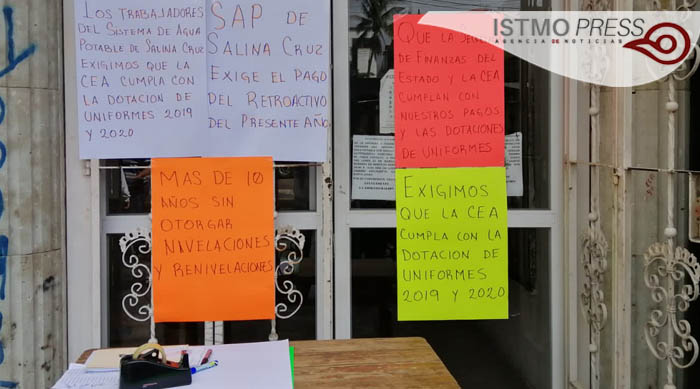 LOS TRABAJADORES
DEL SISTEMA DE AGUA
POTABLE DE SALINA CRUZ
EXIGIMOS QUE LA
CEA CUMPLA CON
LA DOTACIÓN DE
UNIFORMES 2019
Y 2020
SAP DE
SALINA CRUZ
EXIGE EL PAGO
DEL RETROACTIVO
DEL PRESENTE AÑO
QUE LA
DE FINANZAS DEL
ESTADO Y LA CEA
CUMPLAN CON
NUESTROS PAGOS
Y LAS DOTACIONES
DE UNIFORMES
MAS DE 10
AÑOS SIN
OTORGAR
NIVELACIONES
Y RENIVELACIONES
EXIGIMOS
QUE LA CEA
CUMPLA CON LA
DOTACIÓN DE
UNIFORMES
2019 Y 2020
ISTMO PRESS
AGENCIA DE NOTICIAS